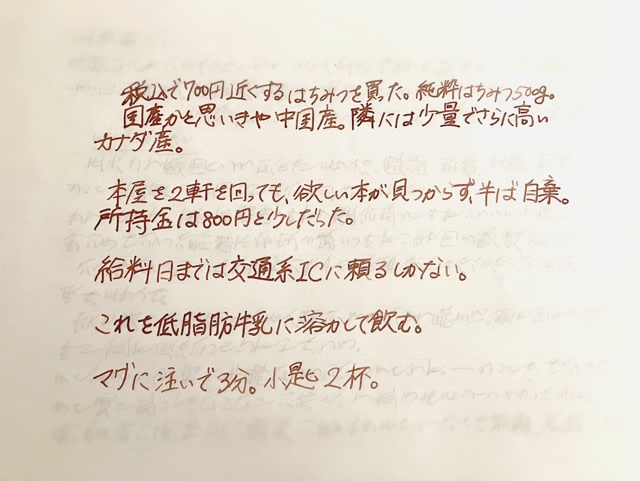 税込で700円近くするはちみつを買った。純粋はちみつ500g。
国産かと思いきや中国産。隣には少量でさらに高い
カナダ産。
本屋を2軒を回っても、欲しい本が見つからず、半ば自棄。
所持金は800円と少しだった。
給料日までは交通系ICに頼るしかない。
これを低脂肪牛乳に溶かして飲む。
マグに注いで3分。小匙2杯。